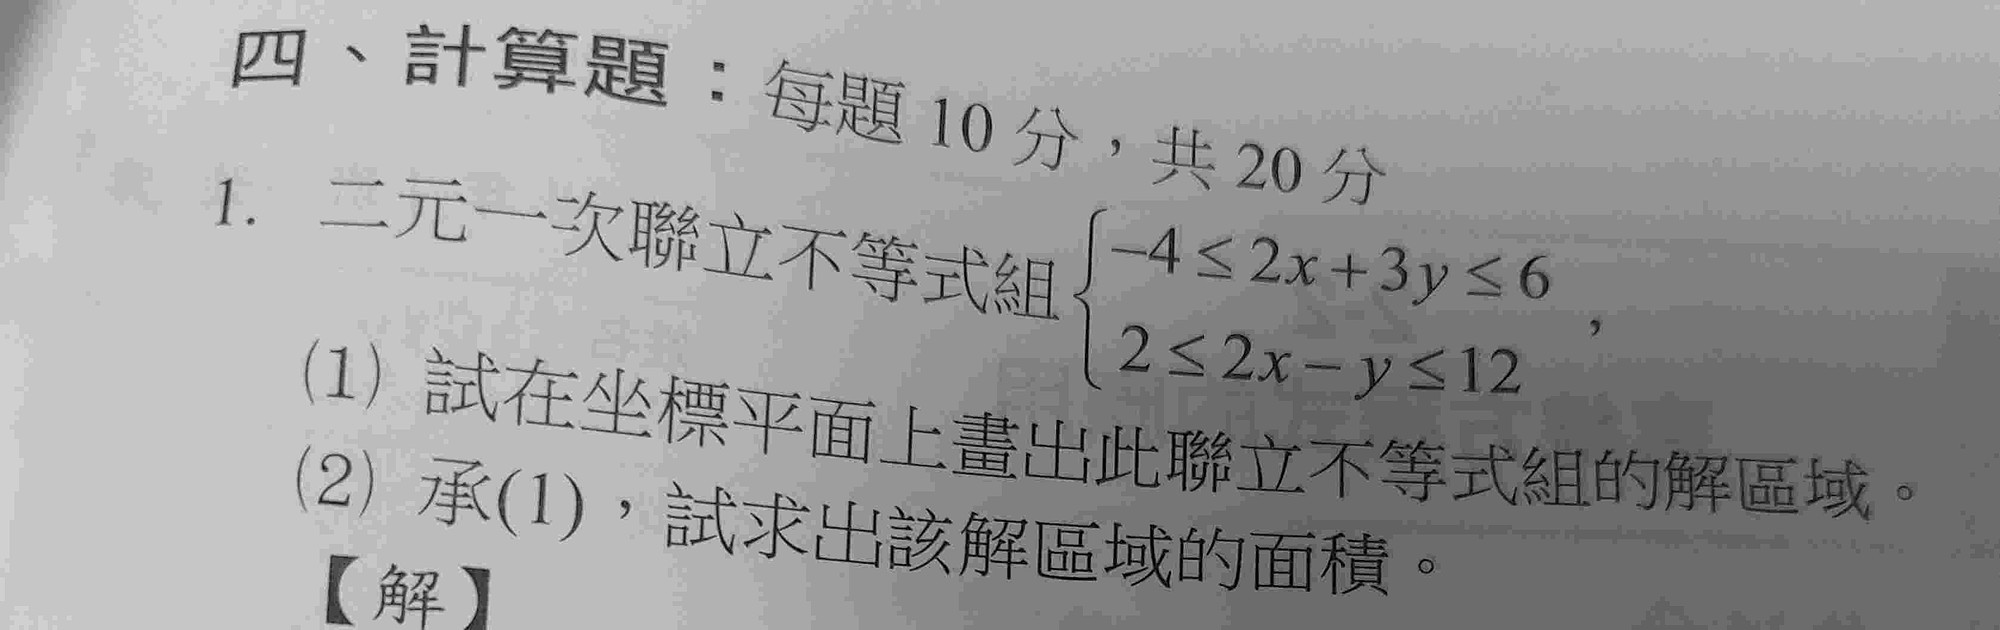 四、計算題：每題 10 分，共 20 分
1. 二元一次聯立不等式組{−4≤2x+3y≤6
2≤2x−y≤12，
(1) 試在坐標平面上畫出此聯立不等式組的解區域。
(2) 承(1)，試求出該解區域的面積。
【解】